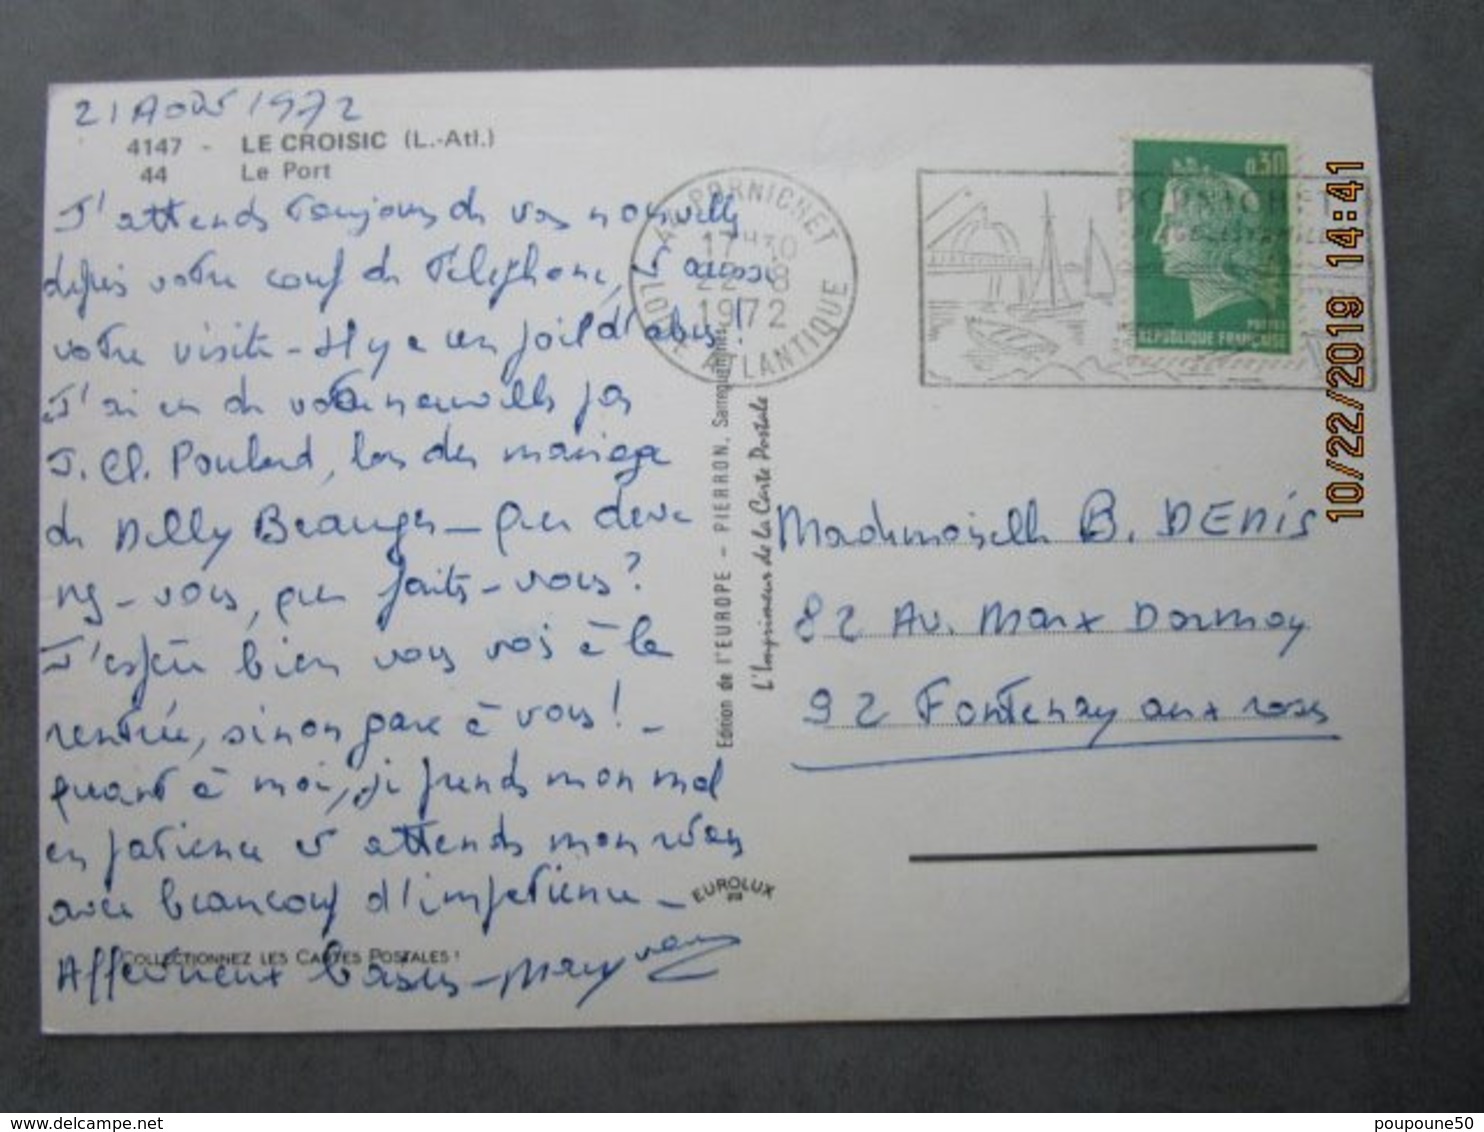 21 Août 1972
4147 - LE CROISIC (L.-Atl.)
44 Le Port
J'attends toujours de vos nouvelles
depuis votre coup de téléphone, et aussi
votre visite - Il y a un poil d'abus !
J'ai eu de vos nouvelles par
J. Cl. Poulard, lors du mariage
de Nelly Beauger - que deve
nez-vous, que faites-vous ?
J'espère bien vous voir à la
rentrée, sinon gare à vous ! -
quant à moi, je prends mon mal
en patience et attends mon
avec beaucoup d'impatience -
Affectueux baisers -
COLLECTIONNEZ LES CARTES POSTALES !
44 PORNICHET
17H30
22-8
1972
LOIRE ATLANTIQUE
PORNICHET
0,30
POSTES
REPUBLIQUE FRANÇAISE
Edition de l'EUROPE - PIERRON, Sarreguemines
L'Imprimeur de la Carte Postale
EUROLUX
Mademoiselle B. DENIS
82 Av. Marx Dormoy
92 Fontenay aux roses
10/22/2019 14:41
poupoune50